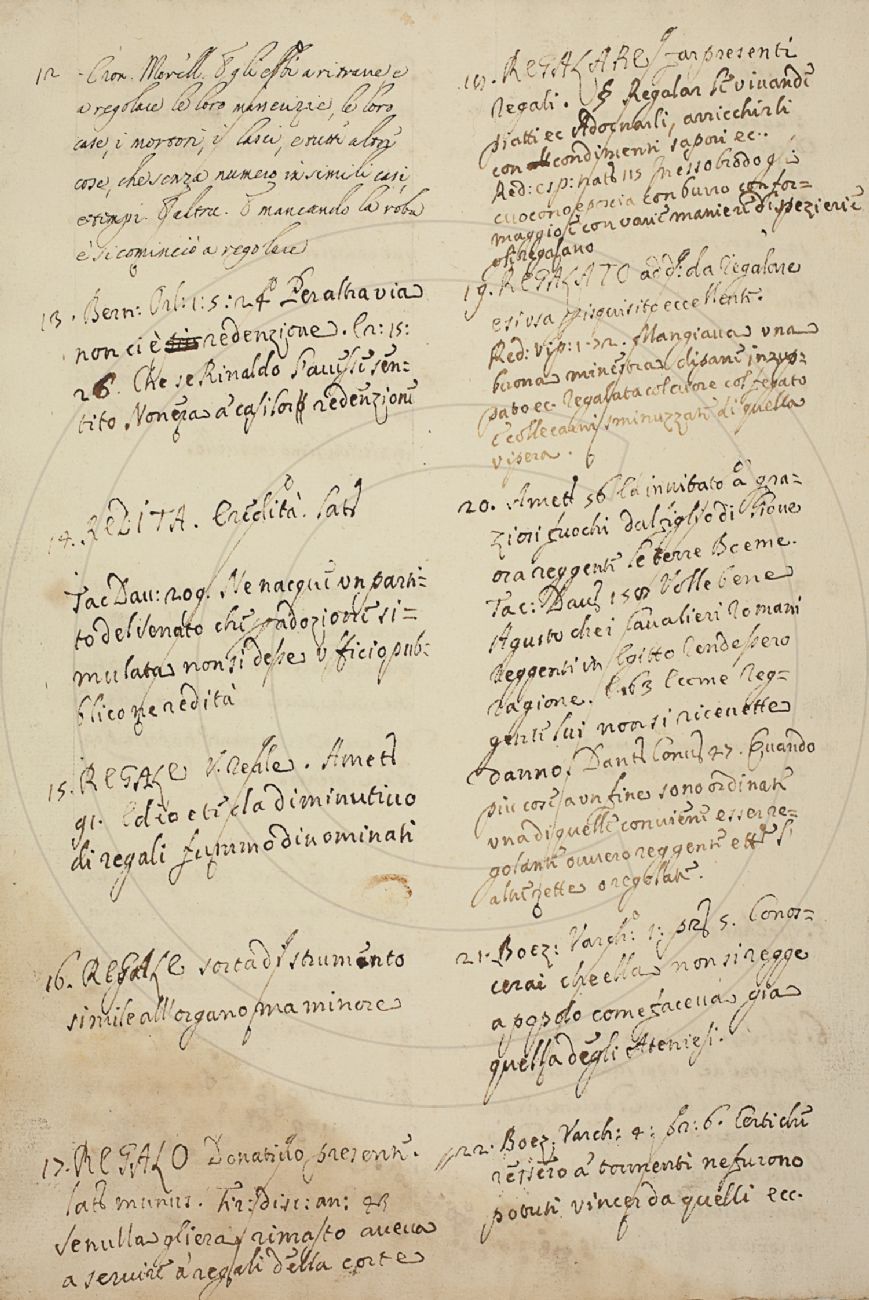 12 - Cron. Morell. E gli ebbi a ritrovare e
a regolare le loro masserizie, le loro
case, i mortori, i lasci, e tutte altre
cose, che senza numero in simili casi
E altro. E mancando la roba
e si cominciò a regolare
13. Bern: Orl: 1: 5: 24. Per altra via
non ci è redenzione. Cr: 15:
26. Che se Rinaldo l'avesse sen-
tito Non era a' casi lor redenzione
14. REDITA. Eredità. Lat:
Tac Dav: 209. Ne nacque un parti-
to del Senato che adozione si-
mulata non si desse ufficio pub-
blico ne redità
15. REGALE V. reale. Amet:
91. Ed io et ella diminutivo
di regali fummo dinominati
16. REGALE sorta di strumento
simile all'organo ma minore
17. REGALO Donativo presente.
lat: munus. Fir: disc: an: 43
Se nulla gliera rimasto aveva
a servire a' regali della corte
18. REGALARE far presenti
Regali. § Regalar le vivande
piatti ec Adornarli, arricchirli
con condimenti sapori ec.
Red: esp: nat: 115 Messo brodo gli
cuocono e poscia con burro con for-
maggio e con varie maniere di spezierie
gli regalano
19. REGALATO add: da Regalare
e si usa per isquisito eccellente.
Red: Vip: 1-32. Mangiava una
buona minestra di pane inzup-
pato ec. Regalata col cuore col fegato
e colle carni sminuzzate di quella
vipera.
20. Amet: 56 La invitato a' gra-
ziosi fuochi dal figlio di Giove
ora reggente le terre Boeme.
Tac: Dav: Volle bene
Agusto che i Cavalieri Romani
Reggenti in Egitto Rendessero
ragione. E 63 E come Reg-
gente lui non si ricevette
danno. Dant: Conv: 47. Quando
più cose a un fine sono ordinate
una di quelle conviene essere re-
golante ovvero reggente e l'
altre rette o regolate.
21. Boez: Varch: 1: pr: 5. Conos-
cerai che ella non si regge
a popolo come faceva già
quella degli Ateniesi.
22. Boez: Varch: 4: pr: 6. Certi che
ressero a' tormenti ne furono
potuti vincer da quelli ecc.